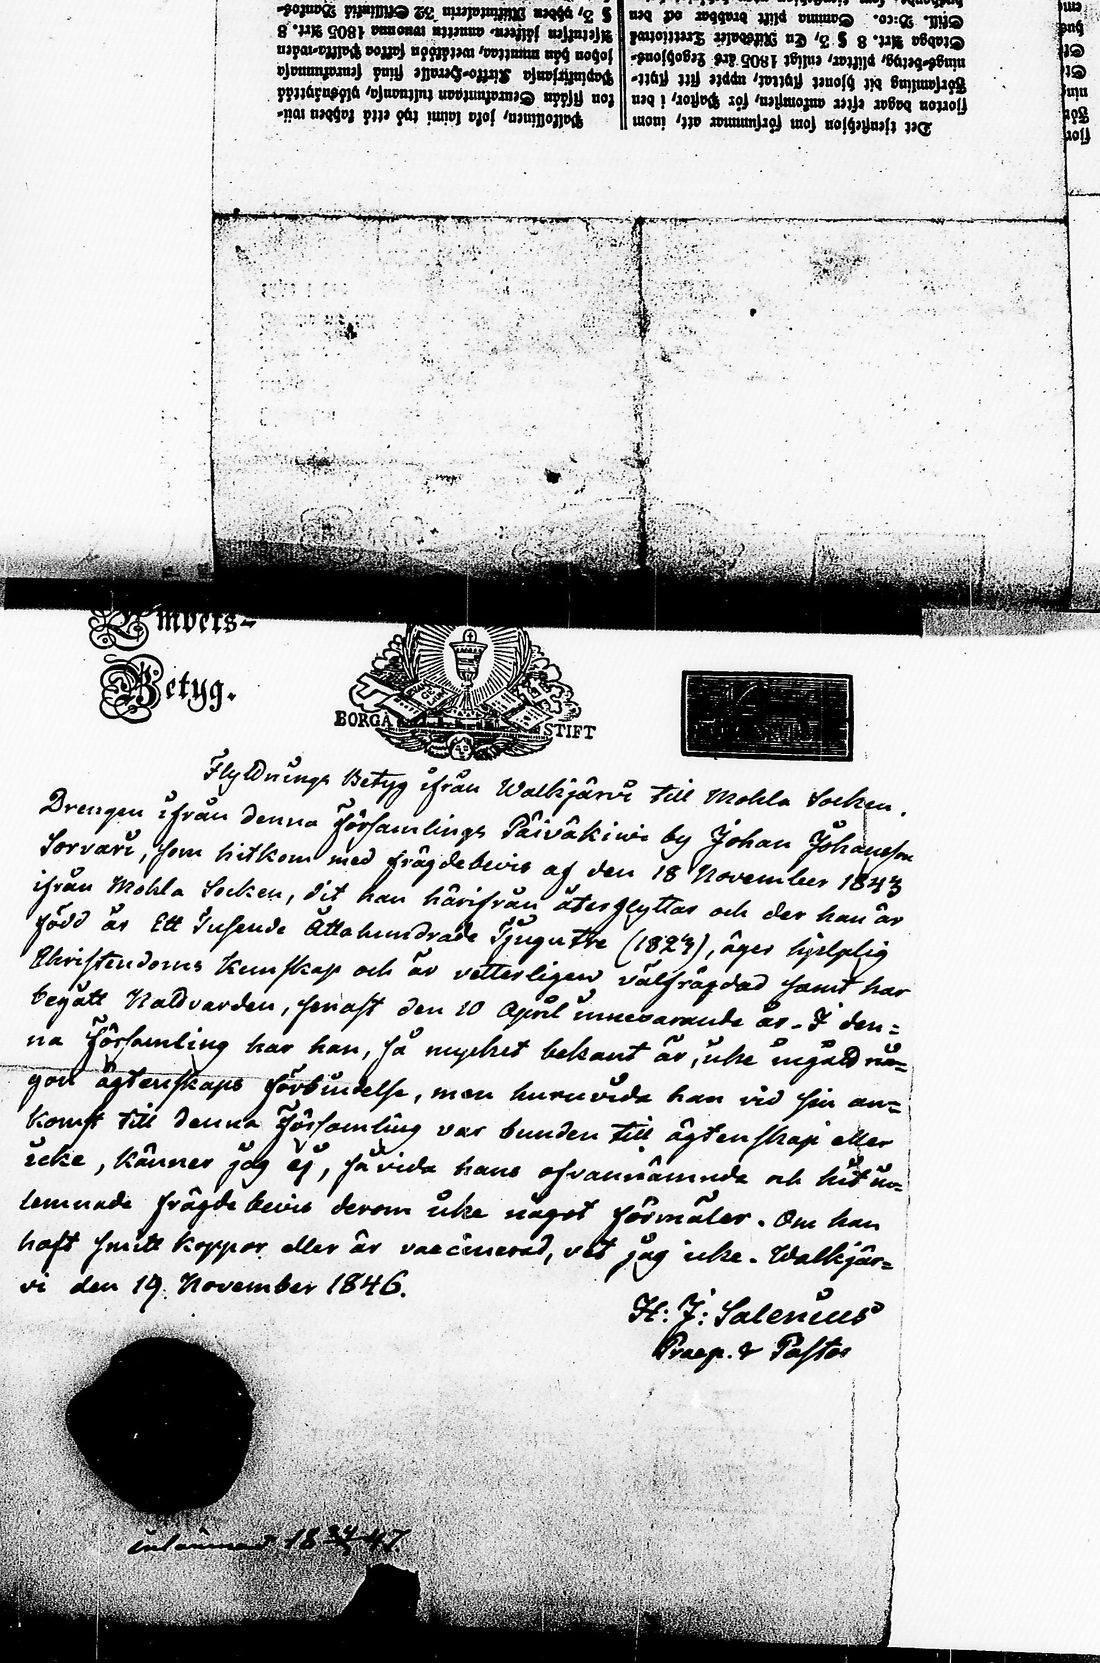 Det tjensthjon som försummar att, inom
fjorton dagar efter ankomsten, för Pastor, i den
Församling dit hjonet flyttat, uppte sitt flytt-
nings-betyg, pliktar, enligt 1805 års Legohjons-
Stadga Art. 8 § 3, En Riksdaler Trettiotwå
Skill. B:co. Samma plikt drabbar ock den
Palkollinen, jota laimi lyö että kahden wii-
kon sisään Seurakuntaan tultuansa, ylösnäyttää
Papinkirjansa Kirkko-Herralle siinä seurakunnassa
johon hän muuttaa, wetääsään sakkoa Palkka-wäen
Asetuksen jälkeen, annettu wuonna 1805 Art. 8
§ 3, yhden Riikintalerin 32 Skillinkiä Bankos-
Embets-
Betyg.
BORGÅ STIFT
Flyttnings Betyg ifrån Walkjärvi till Mohla Socken.
Drengen ifrån denna Församlings Päiväkiwi by Johan Johansson
Sorvari, som hitkom med frägdebevis af den 18 November 1843
ifrån Mohla Socken, dit han härifrån återflyttar och der han är
född år Ett Tusende Åttahundrade Tjugutre (1823), äger hjelplig
Christendoms Kunskap och är vetterligen välfrägdad samt har
begått Nattvarden, senast den 10 April innevarande år. I den=
na Församling har han, så mycket bekant är, icke ingått nå=
gon ägtenskaps förbindelse, men huruvida han vid sin an=
komst till denna Församling var bunden till ägtenskap eller
icke, känner jag ej, såvida hans ofvannämnde och hit in=
lemnade frägdebevis derom icke något förmäler. Om han
haft smitt koppor eller är vaccinerad, vet jag icke. Walkjär=
vi den 19 November 1846.
H: J: Salenius
Praep. & Pastor
inlämnad 18 47.